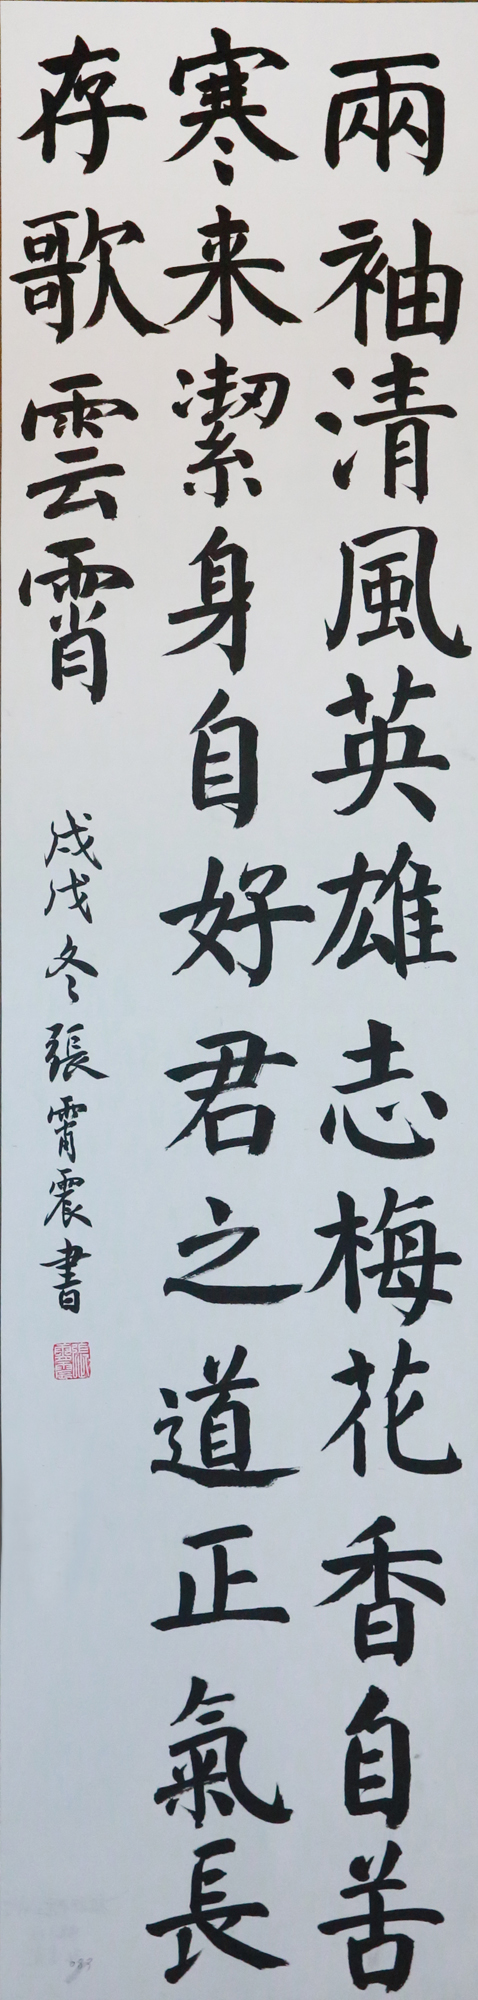 兩袖清風英雄志梅花香自苦
寒来潔身自好君之道正氣長
存歌雲霄
戊戌冬張霄震書